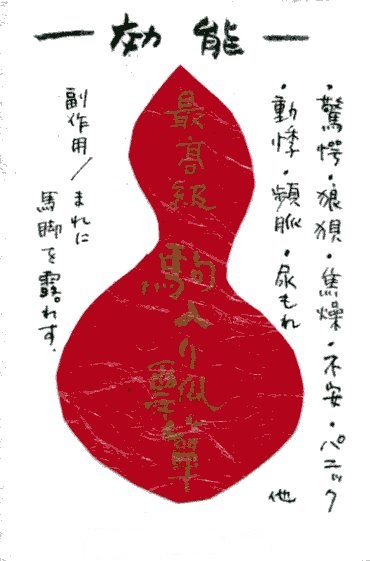 ー効能ー
・驚愕・狼狽・焦燥・不安・パニック
・動悸・頻脈・尿もれ 他
最高級 駒入り瓢箪
副作用／まれに
馬脚を露わす.